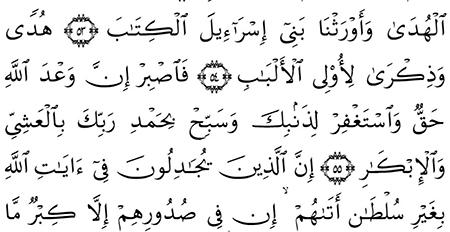 ٱلْهُدَىٰ وَأَوْرَثْنَا بَنِىٓ إِسْرَٰٓءِيلَ ٱلْكِتَـٰبَ ۝٥٣ هُدًى
وَذِكْرَىٰ لِأُو۟لِى ٱلْأَلْبَـٰبِ ۝٥٤ فَٱصْبِرْ إِنَّ وَعْدَ ٱللَّهِ
حَقٌّ وَٱسْتَغْفِرْ لِذَنۢبِكَ وَسَبِّحْ بِحَمْدِ رَبِّكَ بِٱلْعَشِىِّ
وَٱلْإِبْكَـٰرِ ۝٥٥ إِنَّ ٱلَّذِينَ يُجَـٰدِلُونَ فِىٓ ءَايَـٰتِ ٱللَّهِ
بِغَيْرِ سُلْطَـٰنٍ أَتَىٰهُمْ ۙ إِن فِى صُدُورِهِمْ إِلَّا كِبْرٌ مَّا